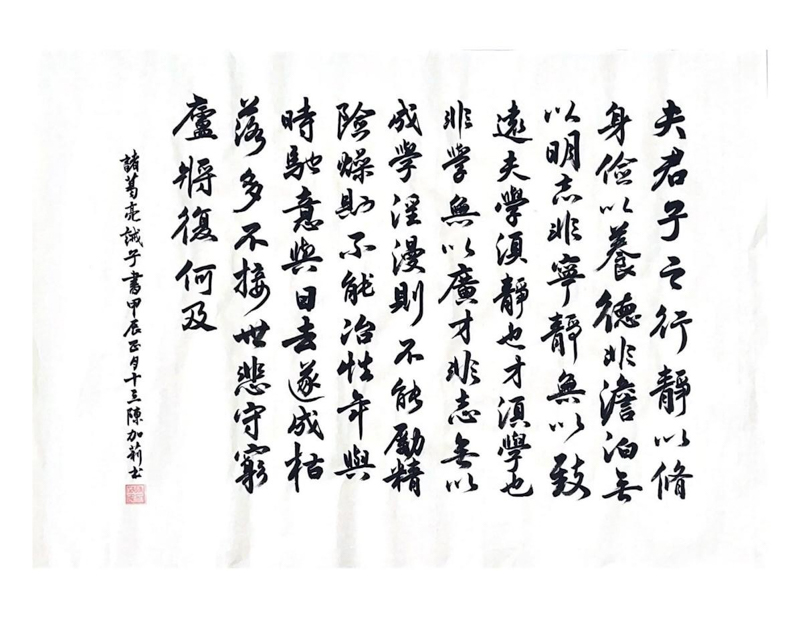 夫君子之行靜以脩
身儉以養德非澹泊無
以明志非寧靜無以致
遠夫學須靜也才須學也
非學無以廣才非志無以
成學淫漫則不能勵精
險燥則不能冶性年與
時馳意與日去遂成枯
落多不接世悲守窮
廬將復何及
諸葛亮誡子書甲辰正月十三陳加莉書